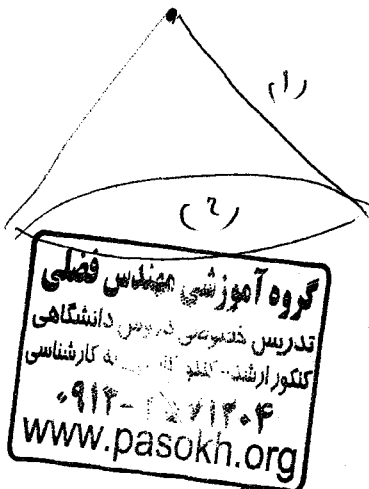 (۱)
(۲)
گروه آموزشی مهندس فضلی
تدریس خصوصی دروس دانشگاهی
کنکور ارشد به کارشناسی
۰۹۱۲-
www.pasokh.org